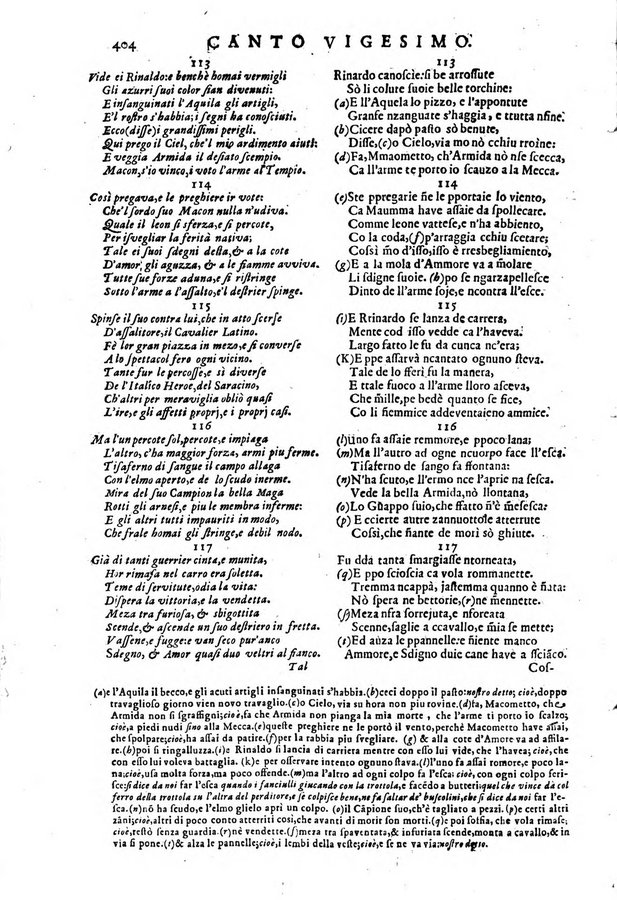 404 CANTO VIGESIMO.
113
Vide ei Rinaldo:e benchè homai vermigli
Gli azurri suoi color sian divenuti:
E insanguinati l'Aquila gli artigli,
E'l rostro s'habbia; i segni ha conosciuti.
Ecco(disse) i grandissimi perigli.
Qui prego il Ciel, che'l mio ardimento aiuti:
E veggia Armida il desiato scempio.
Macon,s'io vinco,i voto l'arme al Tempio.
114
Così pregava,e le preghiere ir vote:
Che'l sordo suo Macon nulla n'udiva.
Quale il leon si sferza,e si percote,
Per isvegliar la ferità nativa;
Tale ei suoi sdegni desta,& a la cote
D'amor, gli aguzza, & a le fiamme avviva.
Tutte sue forze aduna,e si ristringe
Sotto l'arme a l'assalto,e'l destrier spinge.
115
Spinse il suo contra lui,che in atto scerse
D'assalitore,il Cavalier Latino.
Fè lor gran piazza in mezo,e si converse
A lo spettacol fero ogni vicino.
Tante fur le percosse,e sì diverse
De l'Italico Heroe,del Saracino,
Ch'altri per meraviglia obliò quasi
L'ire,e gli affetti proprj,e i proprj casi.
116
Ma l'un percote sol,percote,e impiaga
L'altro,c'ha maggior forza, armi piu ferme.
Tisaferno di sangue il campo allaga
Con l'elmo aperto,e de lo scudo inerme.
Mira del suo Campion la bella Maga
Rotti gli arnesi,e piu le membra inferme:
E gli altri tutti impauriti in modo,
Che frale homai gli stringe,e debil nodo.
117
Già di tanti guerrier cinta,e munita,
Hor rimasa nel carro era soletta.
Teme di servitute,odia la vita:
Dispera la vittoria,e la vendetta.
Meza tra furiosa,& sbigottita
Scende,& ascende un suo destriero in fretta.
Vassene,e fugge:e van seco pur'anco
Sdegno, & Amor quasi duo veltri al fianco.
Tal
113
Rinardo canoscie:si be arrossute
Sò li colure suoie belle torchine:
(a)E ll'Aquela lo pizzo, e l'appontute
Granfe nzanguate s'haggia, e ttutta nfine.
(b)Cicere dapò pasto sò benute,
Disse,(c)o Cielo,via mo nò cchiu rroine:
(d)Fa,Mmaometto, ch'Armida nò nse scecca,
Ca ll'arme te porto io scauzo a la Mecca.
114
(e)Ste ppregarie n̄e le pportaie lo viento,
Ca Maumma have assaie da spollecare.
Comme leone vattese,e n'ha abbiento,
Co la coda,(f)p'arraggia cchiu scetare;
Cossì m̄o d'isso,isso è rresbegliamiento,
(g)E a la mola d'Ammore va a m̄olare
Li sdigne suoie. (h)po se ngarzapellesce
Dinto de ll'arme soje,e ncontra ll'esce.
115
(i)E Rrinardo se lanza de carrera,
Mente cod isso vedde ca l'haveva.
Largo fatto le fu da cunca nc'era;
(K)E ppe assarvà ncantato ognuno steva.
Tale de lo fferì fu la manera,
E ttale fuoco a ll'arme lloro asceva,
Che m̄ille,pe bedè quanto se fice,
Co li n̄emmice addeventaieno ammice.
116
(l)Uno fa assaie remmore,e ppoco lana;
(m)Ma ll'autro ad ogne ncuorpo face ll'esca.
Tisaferno de sango fa ffontana:
(n)N'ha scuto,e ll'ermo nce l'aprie na sesca.
Vede la bella Armida,nò llontana,
(o)Lo Ghappo suio,che ffatto n̄'è m̄esesca:
(p) E ccierte autre zannuottole atterrute
Cossì,che n̄ante de morì sò ghiute.
117
Fu dda tanta smargiasse ntorneata,
(q)E ppo scioscia ca vola rommanette.
Tremma ncappà, jastemma quanno è n̄ata:
Nò spera ne bettorie,(r)ne mennette.
(s)Meza nfra sorrejuta,e nforeata
Scenne,saglie a ccavallo,e m̄ìa se mette;
(t)Ed auza lle ppannelle:e n̄iente manco
Ammore,e Sdigno duie cane havè a sciāco.
Cos-
(a)e l'Aquila il becco,e gli acuti artigli insanguinati s'habbia.(b)ceci doppo il pasto:nostro detto; cioè,doppo
travaglioso giorno vien novo travaglio.(c)o Cielo,via su hora non piu rovine.(d)fa, Macometto, che
Armida non si sgraffigni;cioè,fa che Armida non pianga la mia morte , che l'arme ti porto io scalzo;
cioè,a piedi nudi sino alla Mecca.(e)queste preghiere ne le portò il vento,perchè Macometto have assai
che spolpare;cioè,ha assai da patire.(f)per la rabbia piu svegliare. (g) & alla cote d'Amore va ad affila-
re.(h)poi si ringalluzza.(i)e Rinaldo si lancia di carriera mentre con esso lui vide, che l'havea;cioè,che
con esso lui voleva battaglia. (k)e per osservare intento ognuno stava.(l)l'uno fa assai romore,e poco la-
na;cioè,usa molta forza,ma poco offende.(m)ma l'altro ad ogni colpo fa l'esca:cioè,con ogni colpo feri-
sce:si dice da noi far l'esca quando i fanciulli giucando con la trottola, e facēdo a butteri:quel che vince dà col
ferro della trottola su l'altra del perditore,e se colpisce bene,ne fa saltar de' buscolini,che si dice da noi far l'e-
sca.(n)nō ha scudo,e l'elmo glielo aprì un colpo. (o)il Cāpione suo,ch'è tagliato a pezzi.(p)e certi altri
zāni;cioè,altri di poco conto atterriti così,che avanti di morir son morti.(q)e poi soffia, che vola rimase;
cioè,restò senza guardia. (r)nè vendette.(s)meza tra spaventata,& infuriata scende,monta a cavallo,& in
via si pone.(t)& alza le pannelle;cioè, i lembi della veste;cioè,e se ne va via:nostro detto.